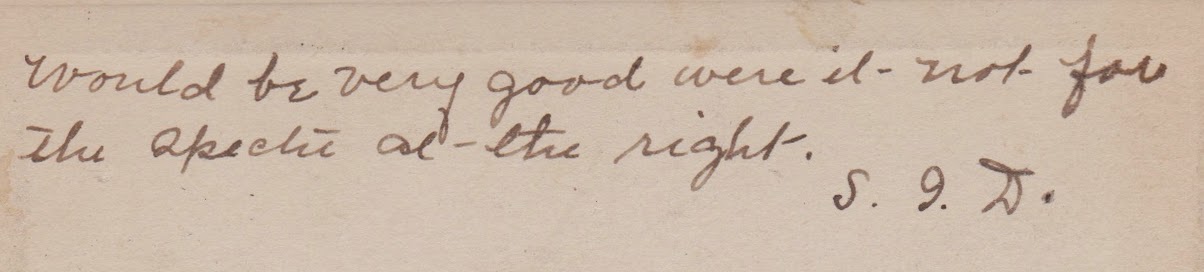 Would be very good were it not for
the at the right.
S. I. D.